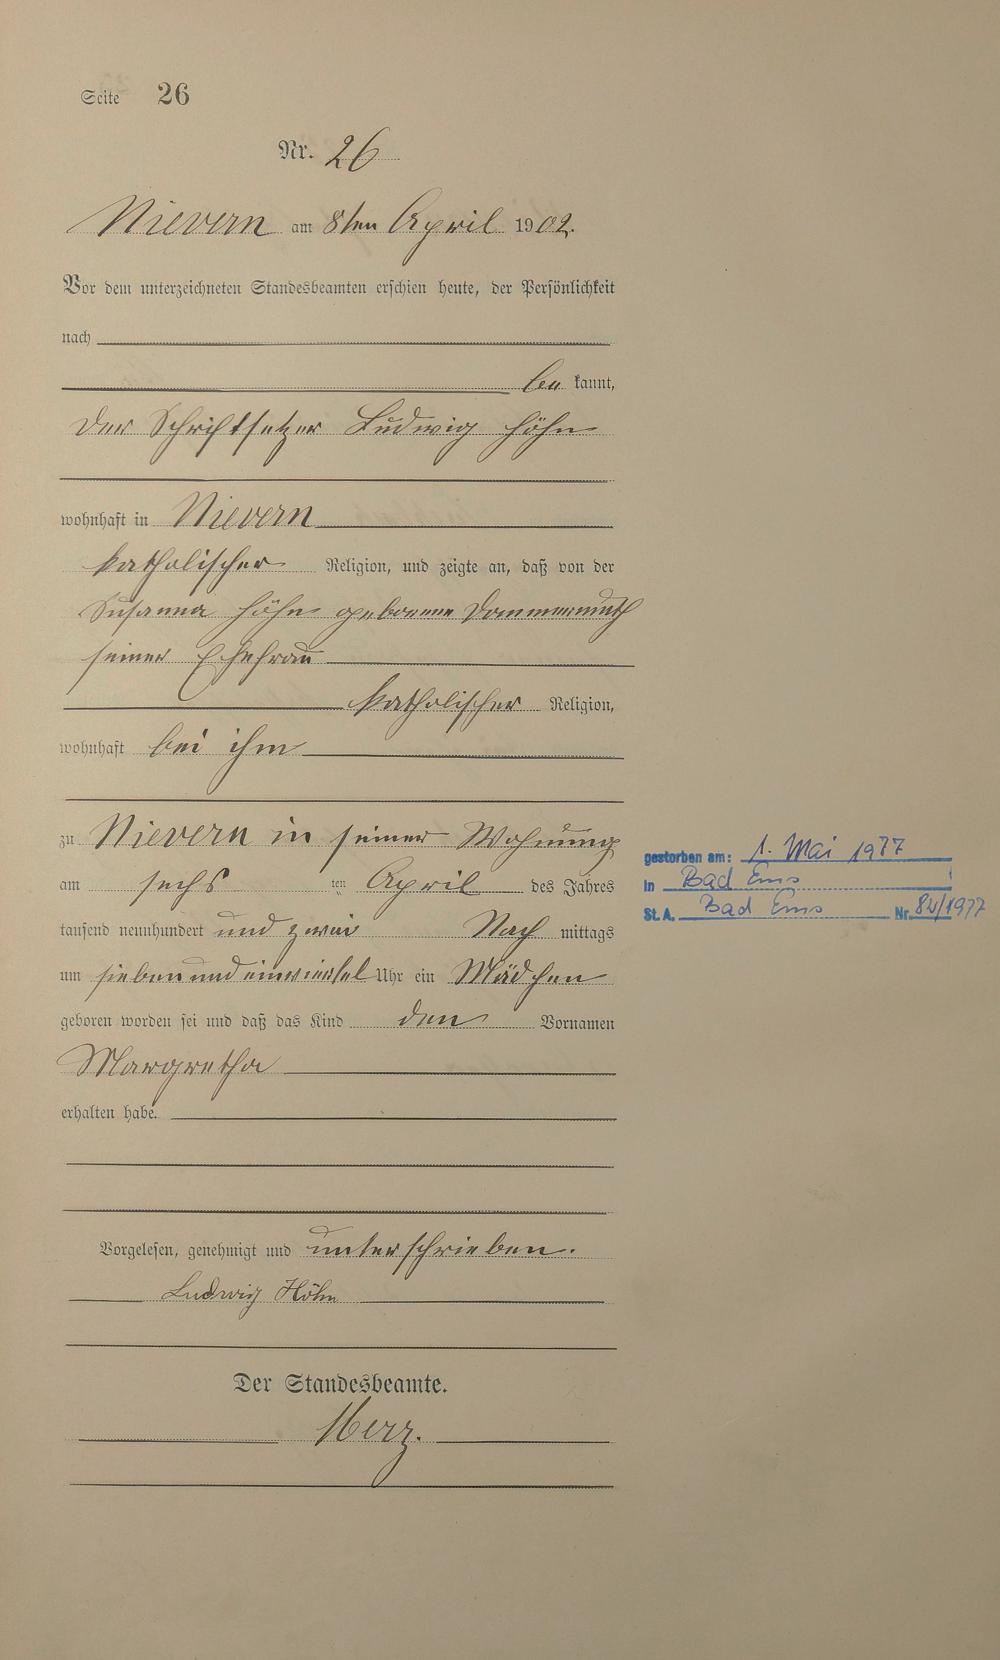 Seite 26
Nr. 26
Nievern am 8ten April 1902.
Vor dem unterzeichneten Standesbeamten erschien heute, der Persönlichkeit
nach
be kannt,
der Schriftsetzer Ludwig Höhn
wohnhaft in Nievern
katholischer Religion, und zeigte an, daß von der
Susanna Höhn geborene Dommermuth
seiner Ehefrau
katholischer Religion,
wohnhaft bei ihm
zu Nievern in seiner Wohnung
am sechs ten April des Jahres
tausend neunhundert und zwei Nach mittags
um sieben und einviertel Uhr ein Mädchen
geboren worden sei und daß das Kind den Vornamen
Margretha
erhalten habe.
gestorben am: 1. Mai 1977
in Bad Ems
St. A. Bad Ems Nr. 82/1977
Vorgelesen, genehmigt und unterschrieben.
Ludwig Höhn
Der Standesbeamte.
Herz.